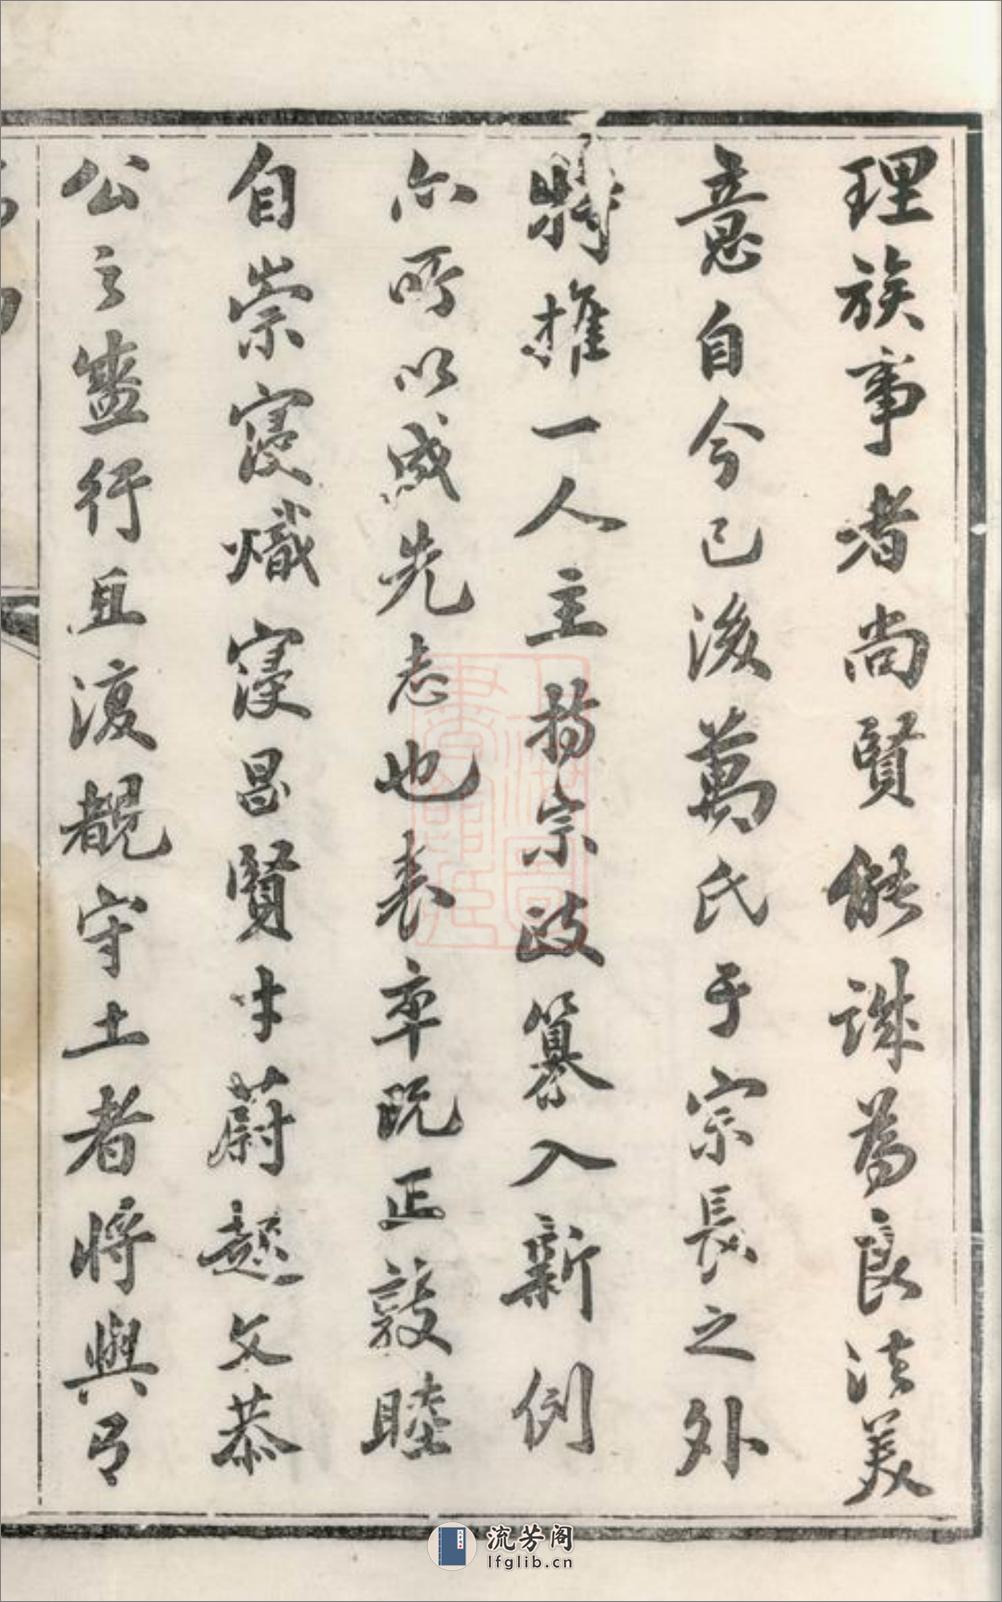 理族事者尚賢能誠為良法美
意自今已後萬氏于宗長之外
特推一人主持宗政纂入新例
亦所以成先志也表率既正敦睦
自崇寖熾寖昌賢才蔚起文恭
公之盛行且復觀守土者將與有
流芳阁
lfglib.cn